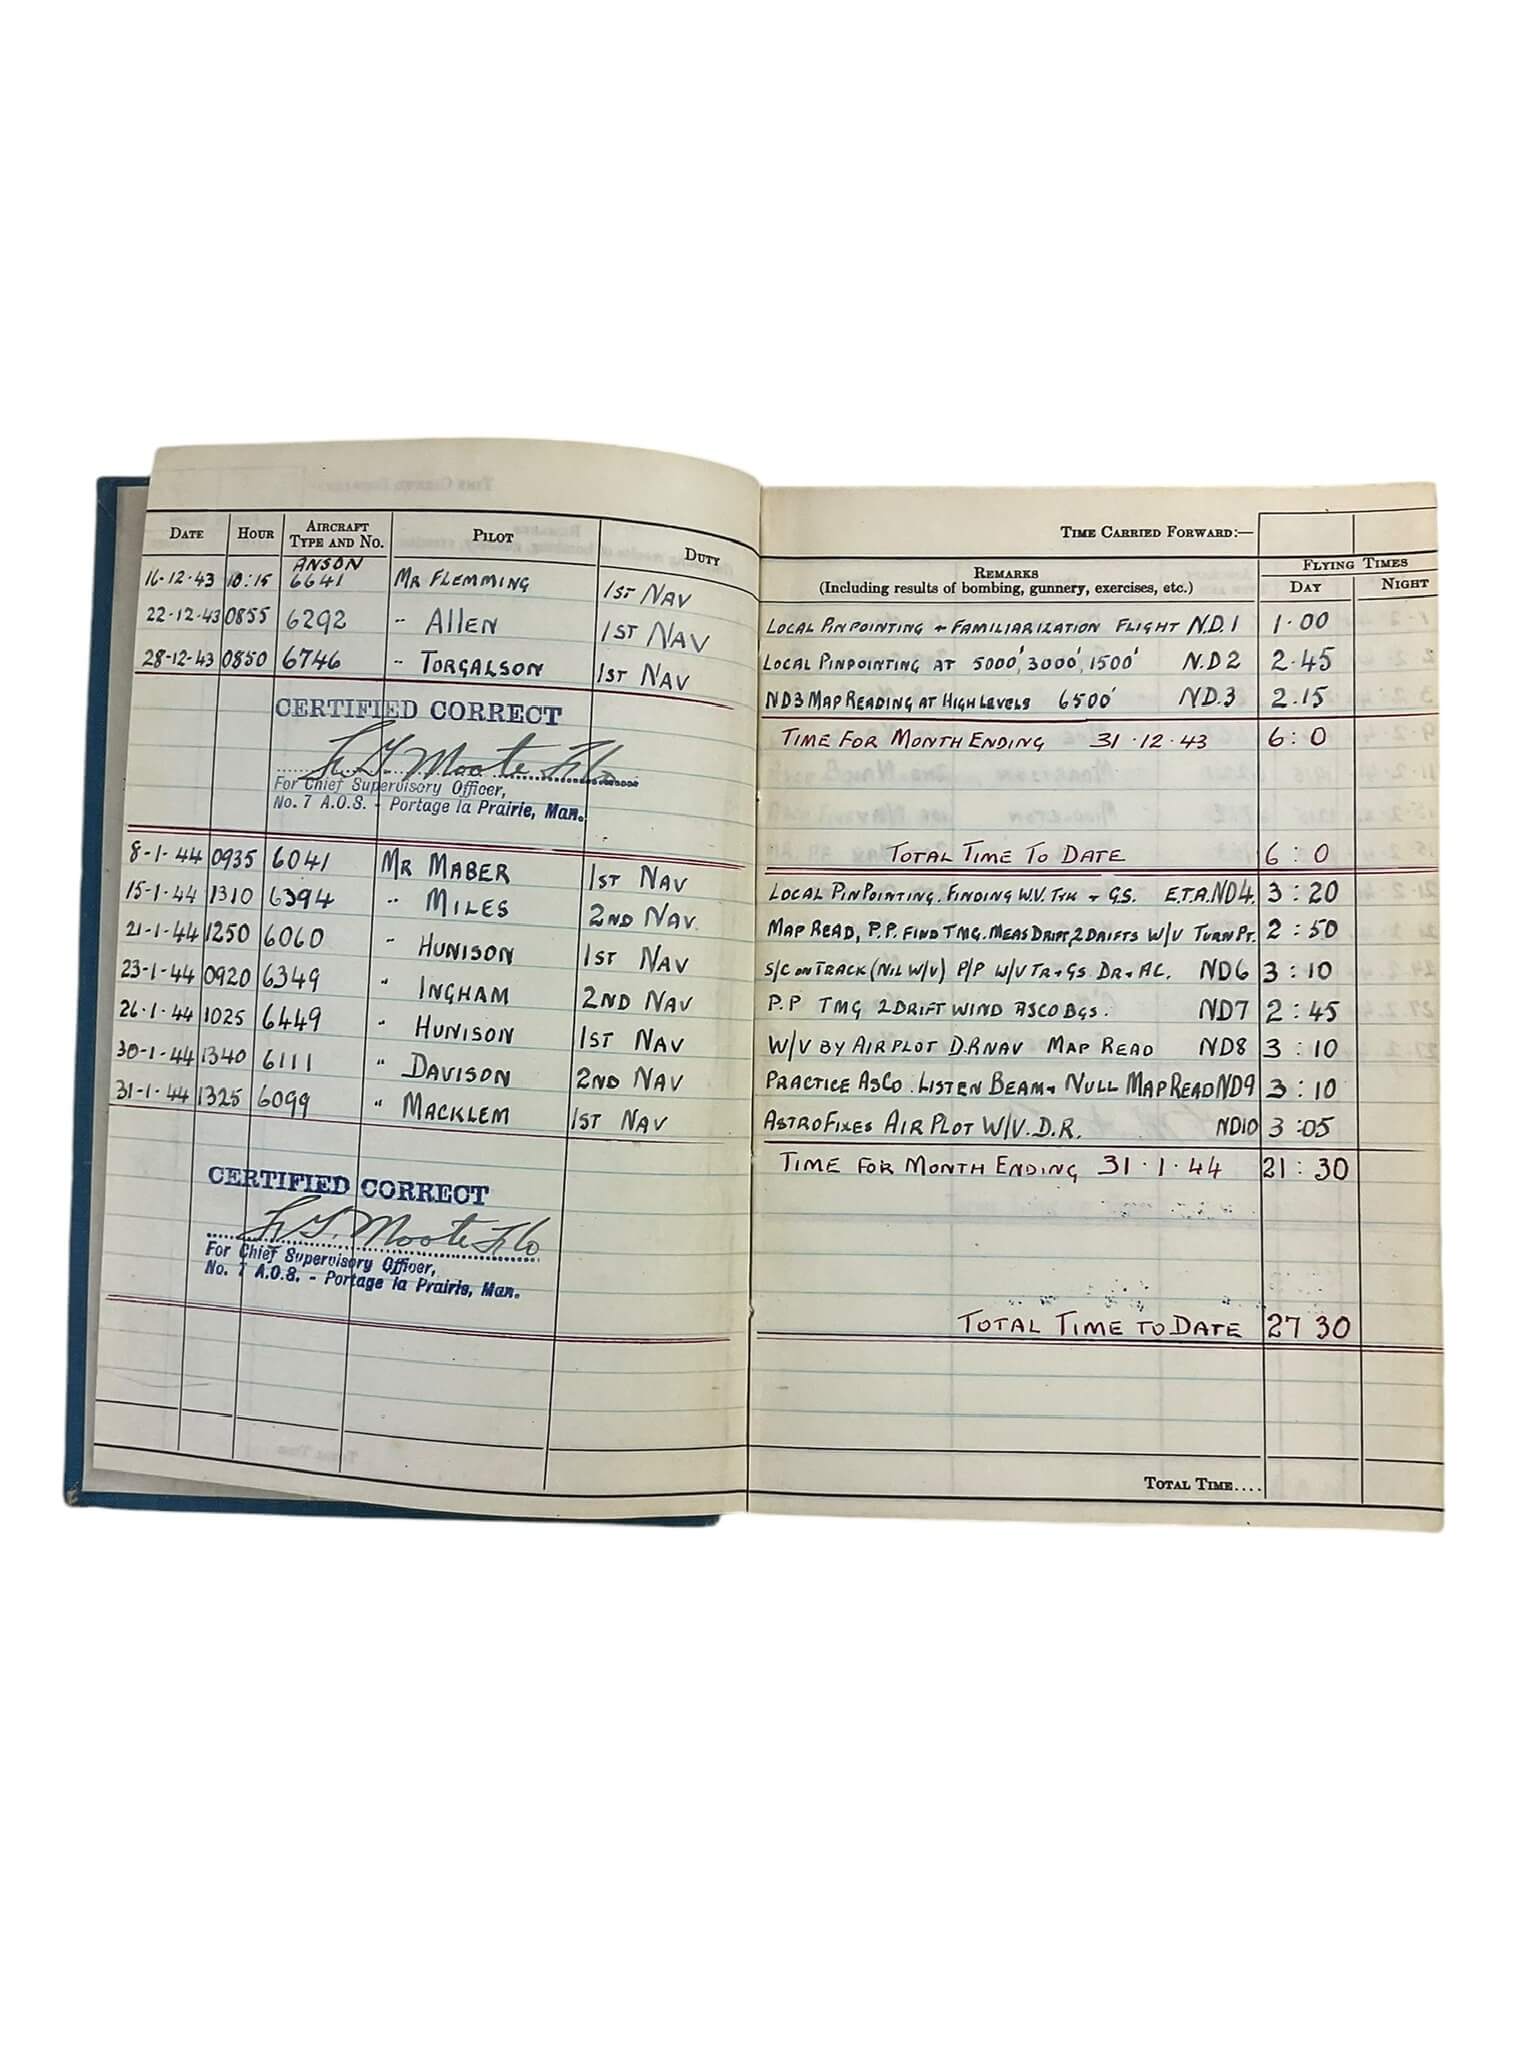 DATE HOUR AIRCRAFT TYPE AND NO. PILOT DUTY
ANSON
16-12-43 10:15 6641 MR FLEMMING 1ST NAV
22-12-43 0855 6292 " ALLEN 1ST NAV
28-12-43 0850 6746 " TORGALSON 1ST NAV
CERTIFIED CORRECT
Moote F/Lo
For Chief Supervisory Officer,
No. 7 A.O.S. - Portage la Prairie, Man.
8-1-44 0935 6041 MR MABER 1ST NAV
15-1-44 1310 6394 " MILES 2ND NAV.
21-1-44 1250 6060 " HUNISON 1ST NAV
23-1-44 0920 6349 " INGHAM 2ND NAV
26-1-44 1025 6449 " HUNISON 1ST NAV
30-1-44 1340 6111 " DAVISON 2ND NAV
31-1-44 1325 6099 " MACKLEM 1ST NAV
CERTIFIED CORRECT
Moote F/Lo
For Chief Supervisory Officer,
No. 7 A.O.S. - Portage la Prairie, Man.
TIME CARRIED FORWARD:—
REMARKS
(Including results of bombing, gunnery, exercises, etc.)
FLYING TIMES
DAY NIGHT
LOCAL PINPOINTING + FAMILIARIZATION FLIGHT N.D.1 1.00
LOCAL PINPOINTING AT 5000', 3000', 1500' N.D2 2.45
ND3 MAP READING AT HIGH LEVELS 6500' ND.3 2.15
TIME FOR MONTH ENDING 31.12.43 6:0
TOTAL TIME TO DATE 6:0
LOCAL PINPOINTING. FINDING W.V. TRK + G.S. E.T.A. ND4. 3:20
MAP READ, P.P. FIND TMG. MEAS DRIFT, 2 DRIFTS W/V TURN PT. 2:50
S/C ON TRACK (NIL W/V) P/P W/V TR + GS DR + AC. ND6 3:10
P.P TMG 2 DRIFT WIND ASCO BGS. ND7 2:45
W/V BY AIRPLOT D.R NAV MAP READ ND8 3:10
PRACTICE ASCO. LISTEN BEAM + NULL MAP READ ND9 3:10
ASTRO FIXES AIR PLOT W/V. D.R. ND10 3:05
TIME FOR MONTH ENDING 31.1.44 21:30
TOTAL TIME TO DATE 27 30
TOTAL TIME....